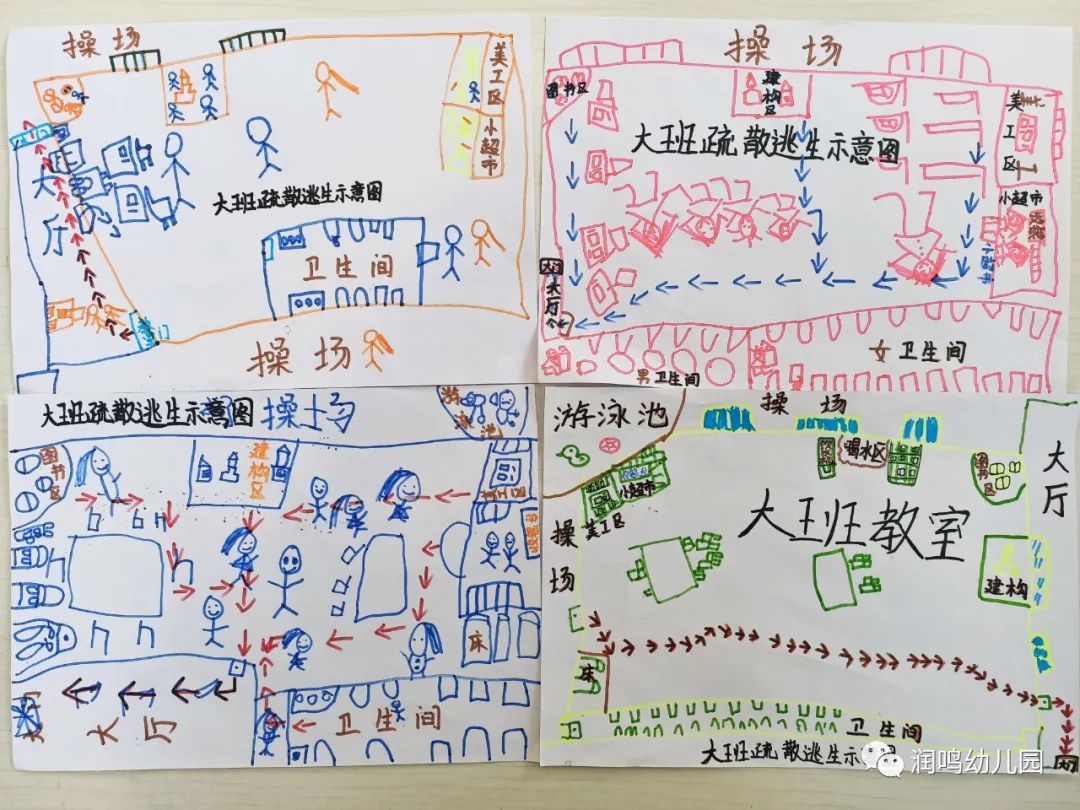 操场
美工区
小超市
大厅
大班疏散逃生示意图
卫生间
操场
操场
图书区
建构区
美工区
大班疏散逃生示意图
小超市
大厅
女卫生间
男卫生间
大班疏散逃生示意图
操场
游泳池
图书区
建构区
床
大厅
卫生间
游泳池
操场
喝水区
图书区
大厅
小超市
美工区
操场
大班教室
建构
床
卫生间
大班疏散逃生示意图
润鸣幼儿园